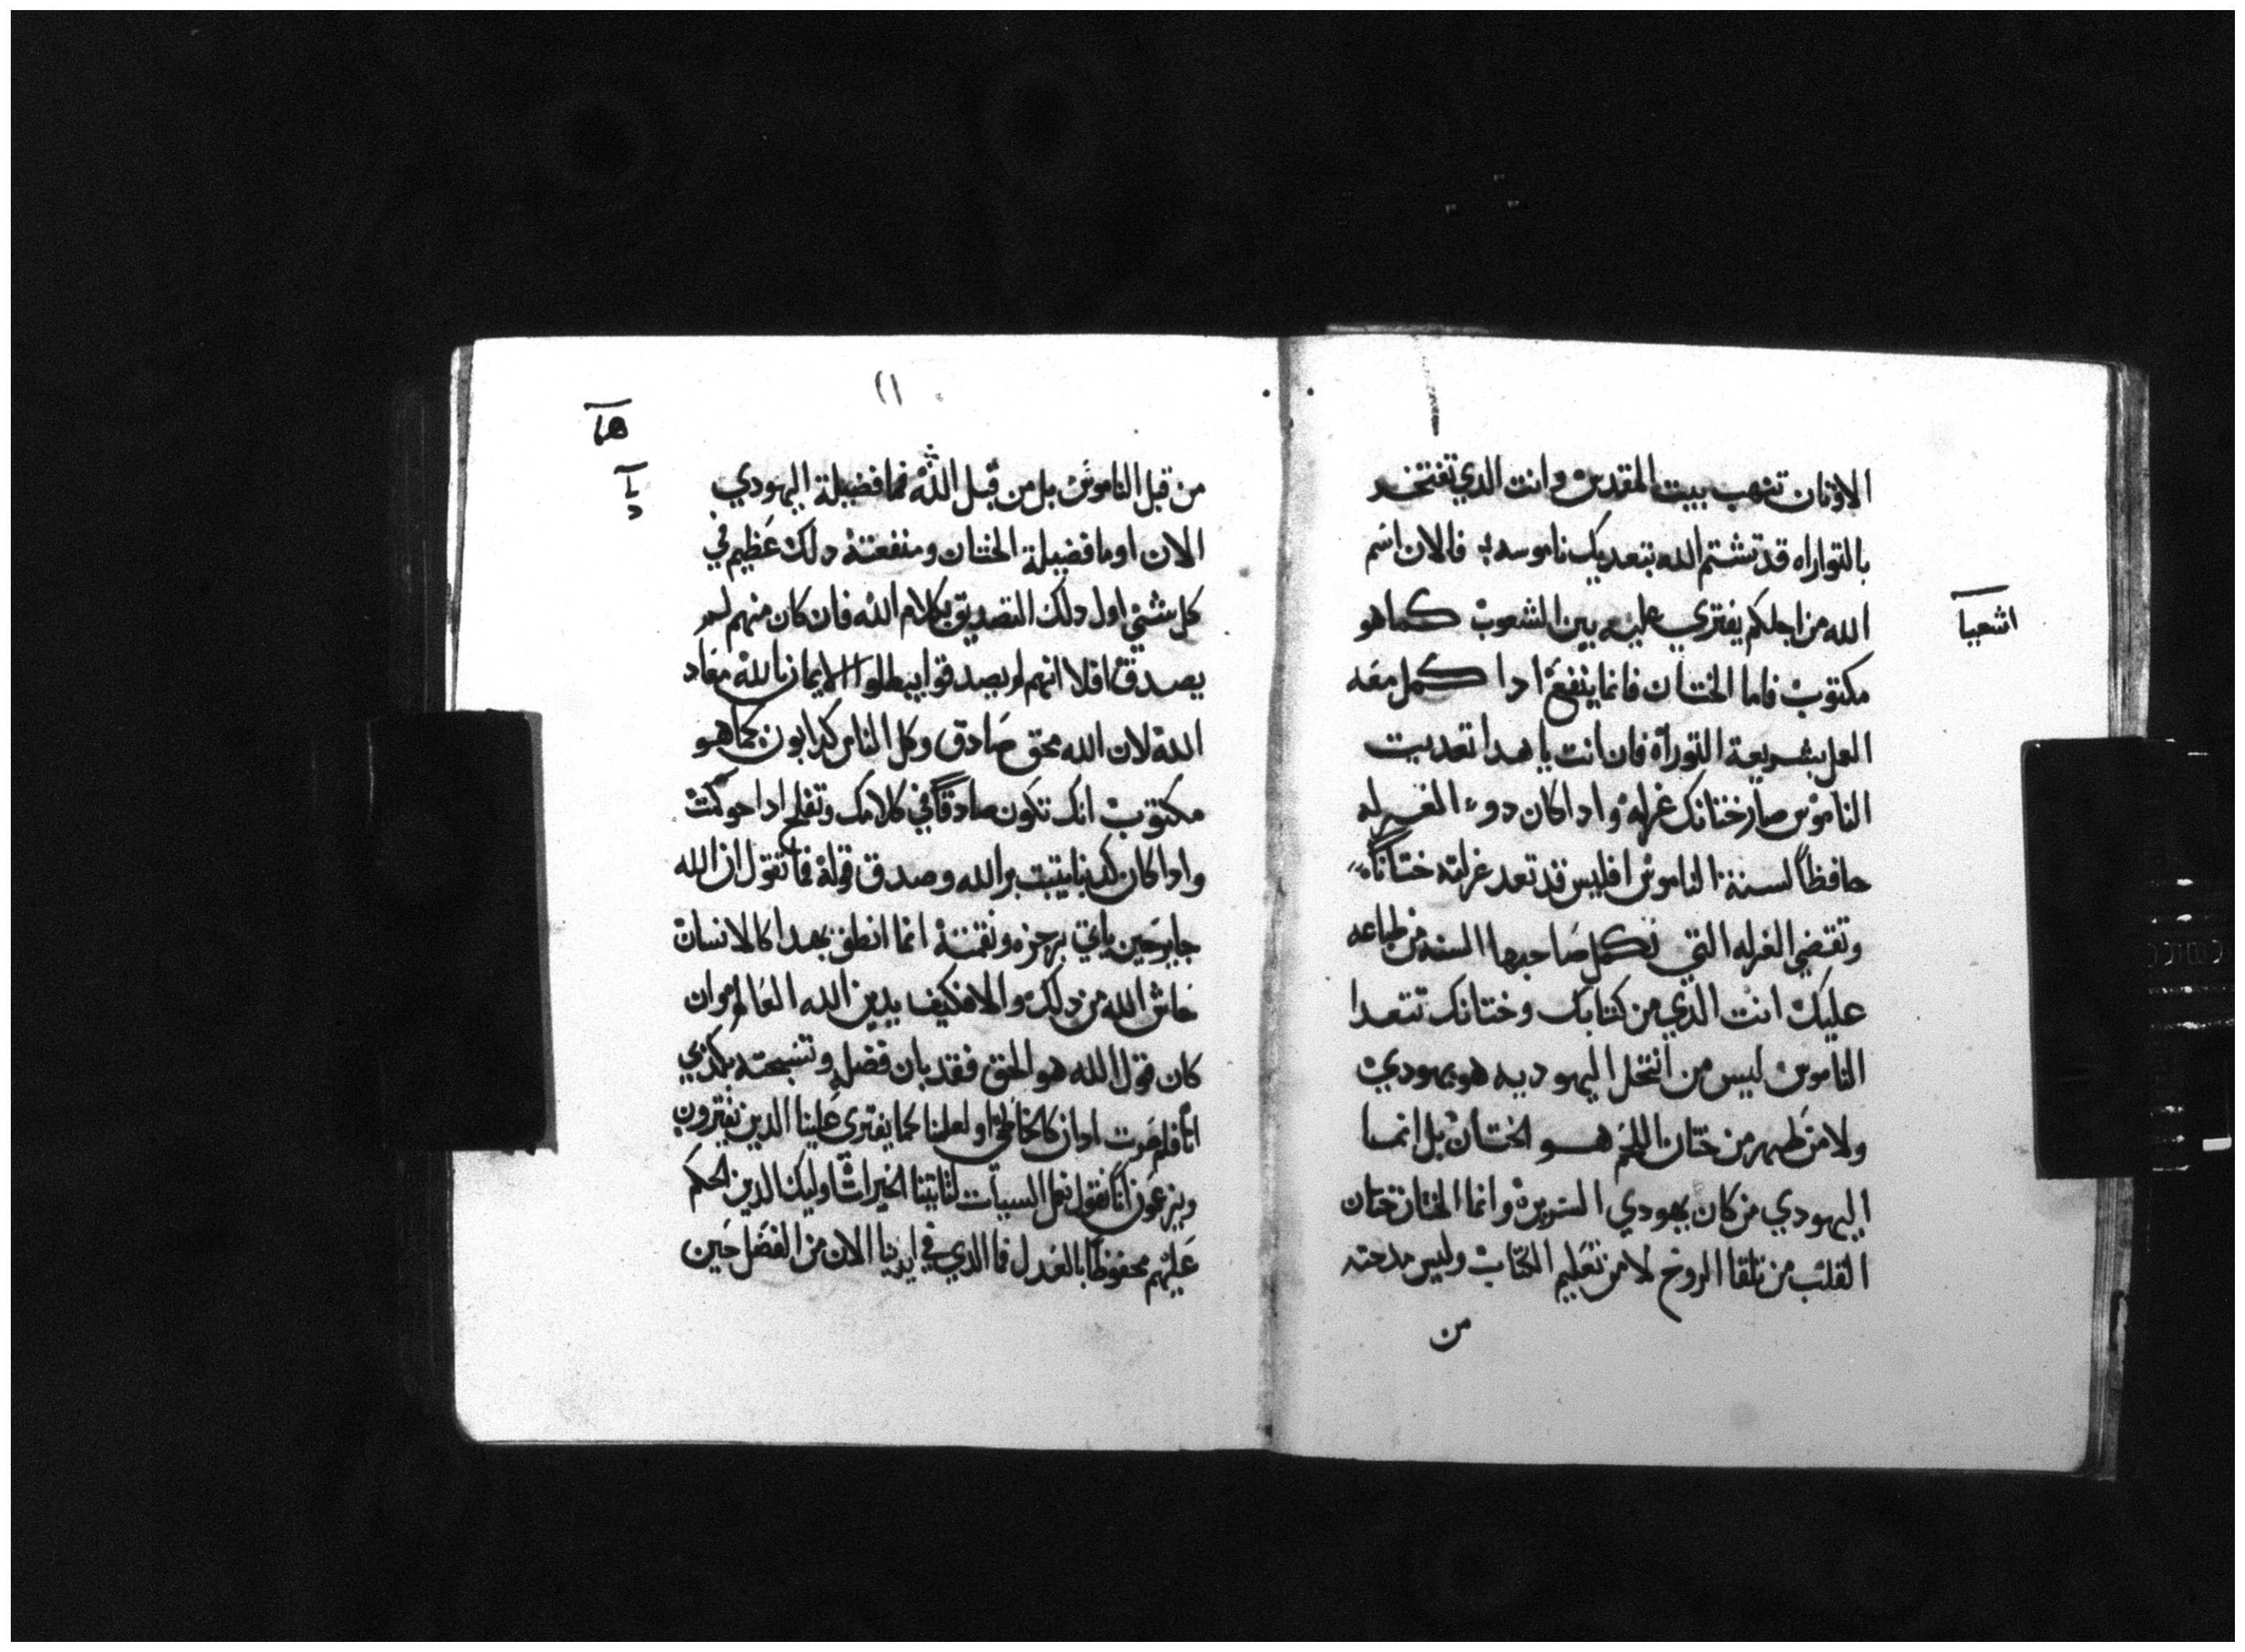 الاوثان تنهب بيت المقدس وانت الدي تفتخد
بالتواراه قد تشتم الله بتعديك ناموسه فالان اسم
الله من اجلكم يفتري عليه بين الشعوب كما هو
اشعيا
مكتوب فاما الختان فانما ينفع ادا كمل معه
العمل بشريعة التوراة فان انت يا هدا تعديت
الناموس صار ختانك غرله وادا كان دو الغرله
حافظاً لسنة الناموس افليس قد تعد غرلته ختاناً
وتقضي الغرله التي تكمل صاحبها السنه من طباعه
عليك انت الدي من كتابك وختانك تتعدا
الناموس ليس من انتحل اليهوديه هو يهودي
ولا من ظهر من ختان اللحم هو الختان بل انما
اليهودي من كان يهودي السريرة وانما الختان ختان
القلب من تلقا الروح لا من تعليم الكتاب وليس مدحته
من
١١
من قبل الناموس بل من قبل الله فما فضيلة اليهودي
الان او ما فضيلة الختان ومنفعتة دلك عظيم في
كل شي اول دلك التصديق بكلام الله فان كان منهم لم
يصدق افلا انهم لم يصدقوا يبطلوا الايمان بالله معاد
الله لان الله محق صادق وكل الناس كدابون كما هو
مكتوب انك تكون صادقاً في كلامك وتفلح ادا حوكمت
وادا كان كدبنا يتبت بر الله وصدق قولة فما تقول ان الله
جاير حين ياتي برجزه ونقمتة انما انطق بهدا كالانسان
حاش الله من دلك والا فكيف يدين الله العالم وان
كان قول الله هو الحق فقد بان فضله وتسبحته بكدبي
انا فلم صرت ادان كالخاطي او لعلنا كما يفتري علينا الدين يفترون
ويزعمون انا نقول نعمل السيات لتاتينا الخيرات اوليك الدين الحكم
عليهم محفوظاً بالعدل فما الدي في ايدينا الان من الفضل حين